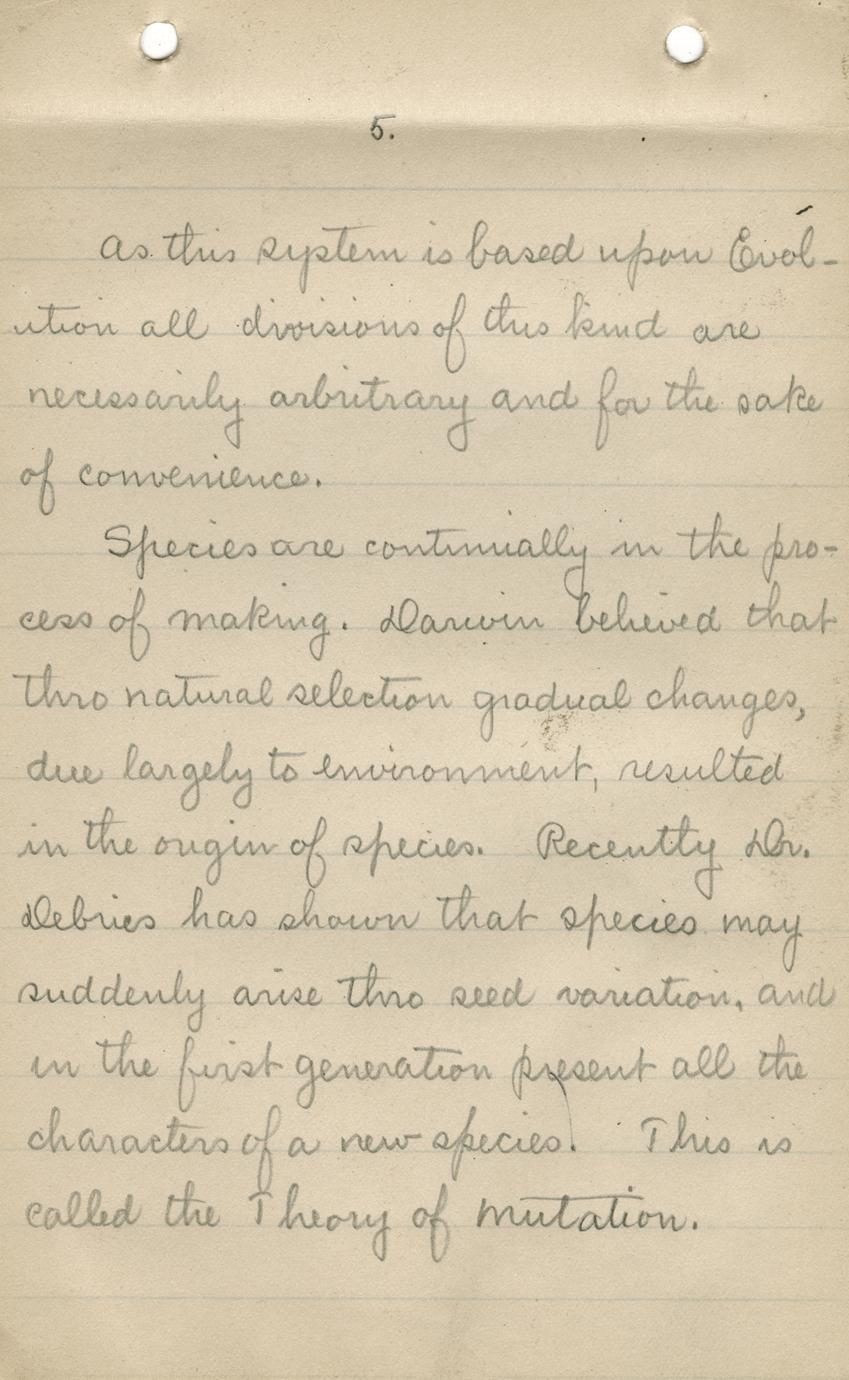 5.
As this system is based upon Evol-
ution all divisions of this kind are
necessarily arbritrary and for the sake
of convenience.
Species are continually in the pro-
cess of making. Darwin believed that
thro natural selection gradual changes,
due largely to environment, resulted
in the origin of species. Recently Dr.
Debries has shown that species may
suddenly arise thro seed variation, and
in the first generation present all the
characters of a new species. This is
called the Theory of Mutation.